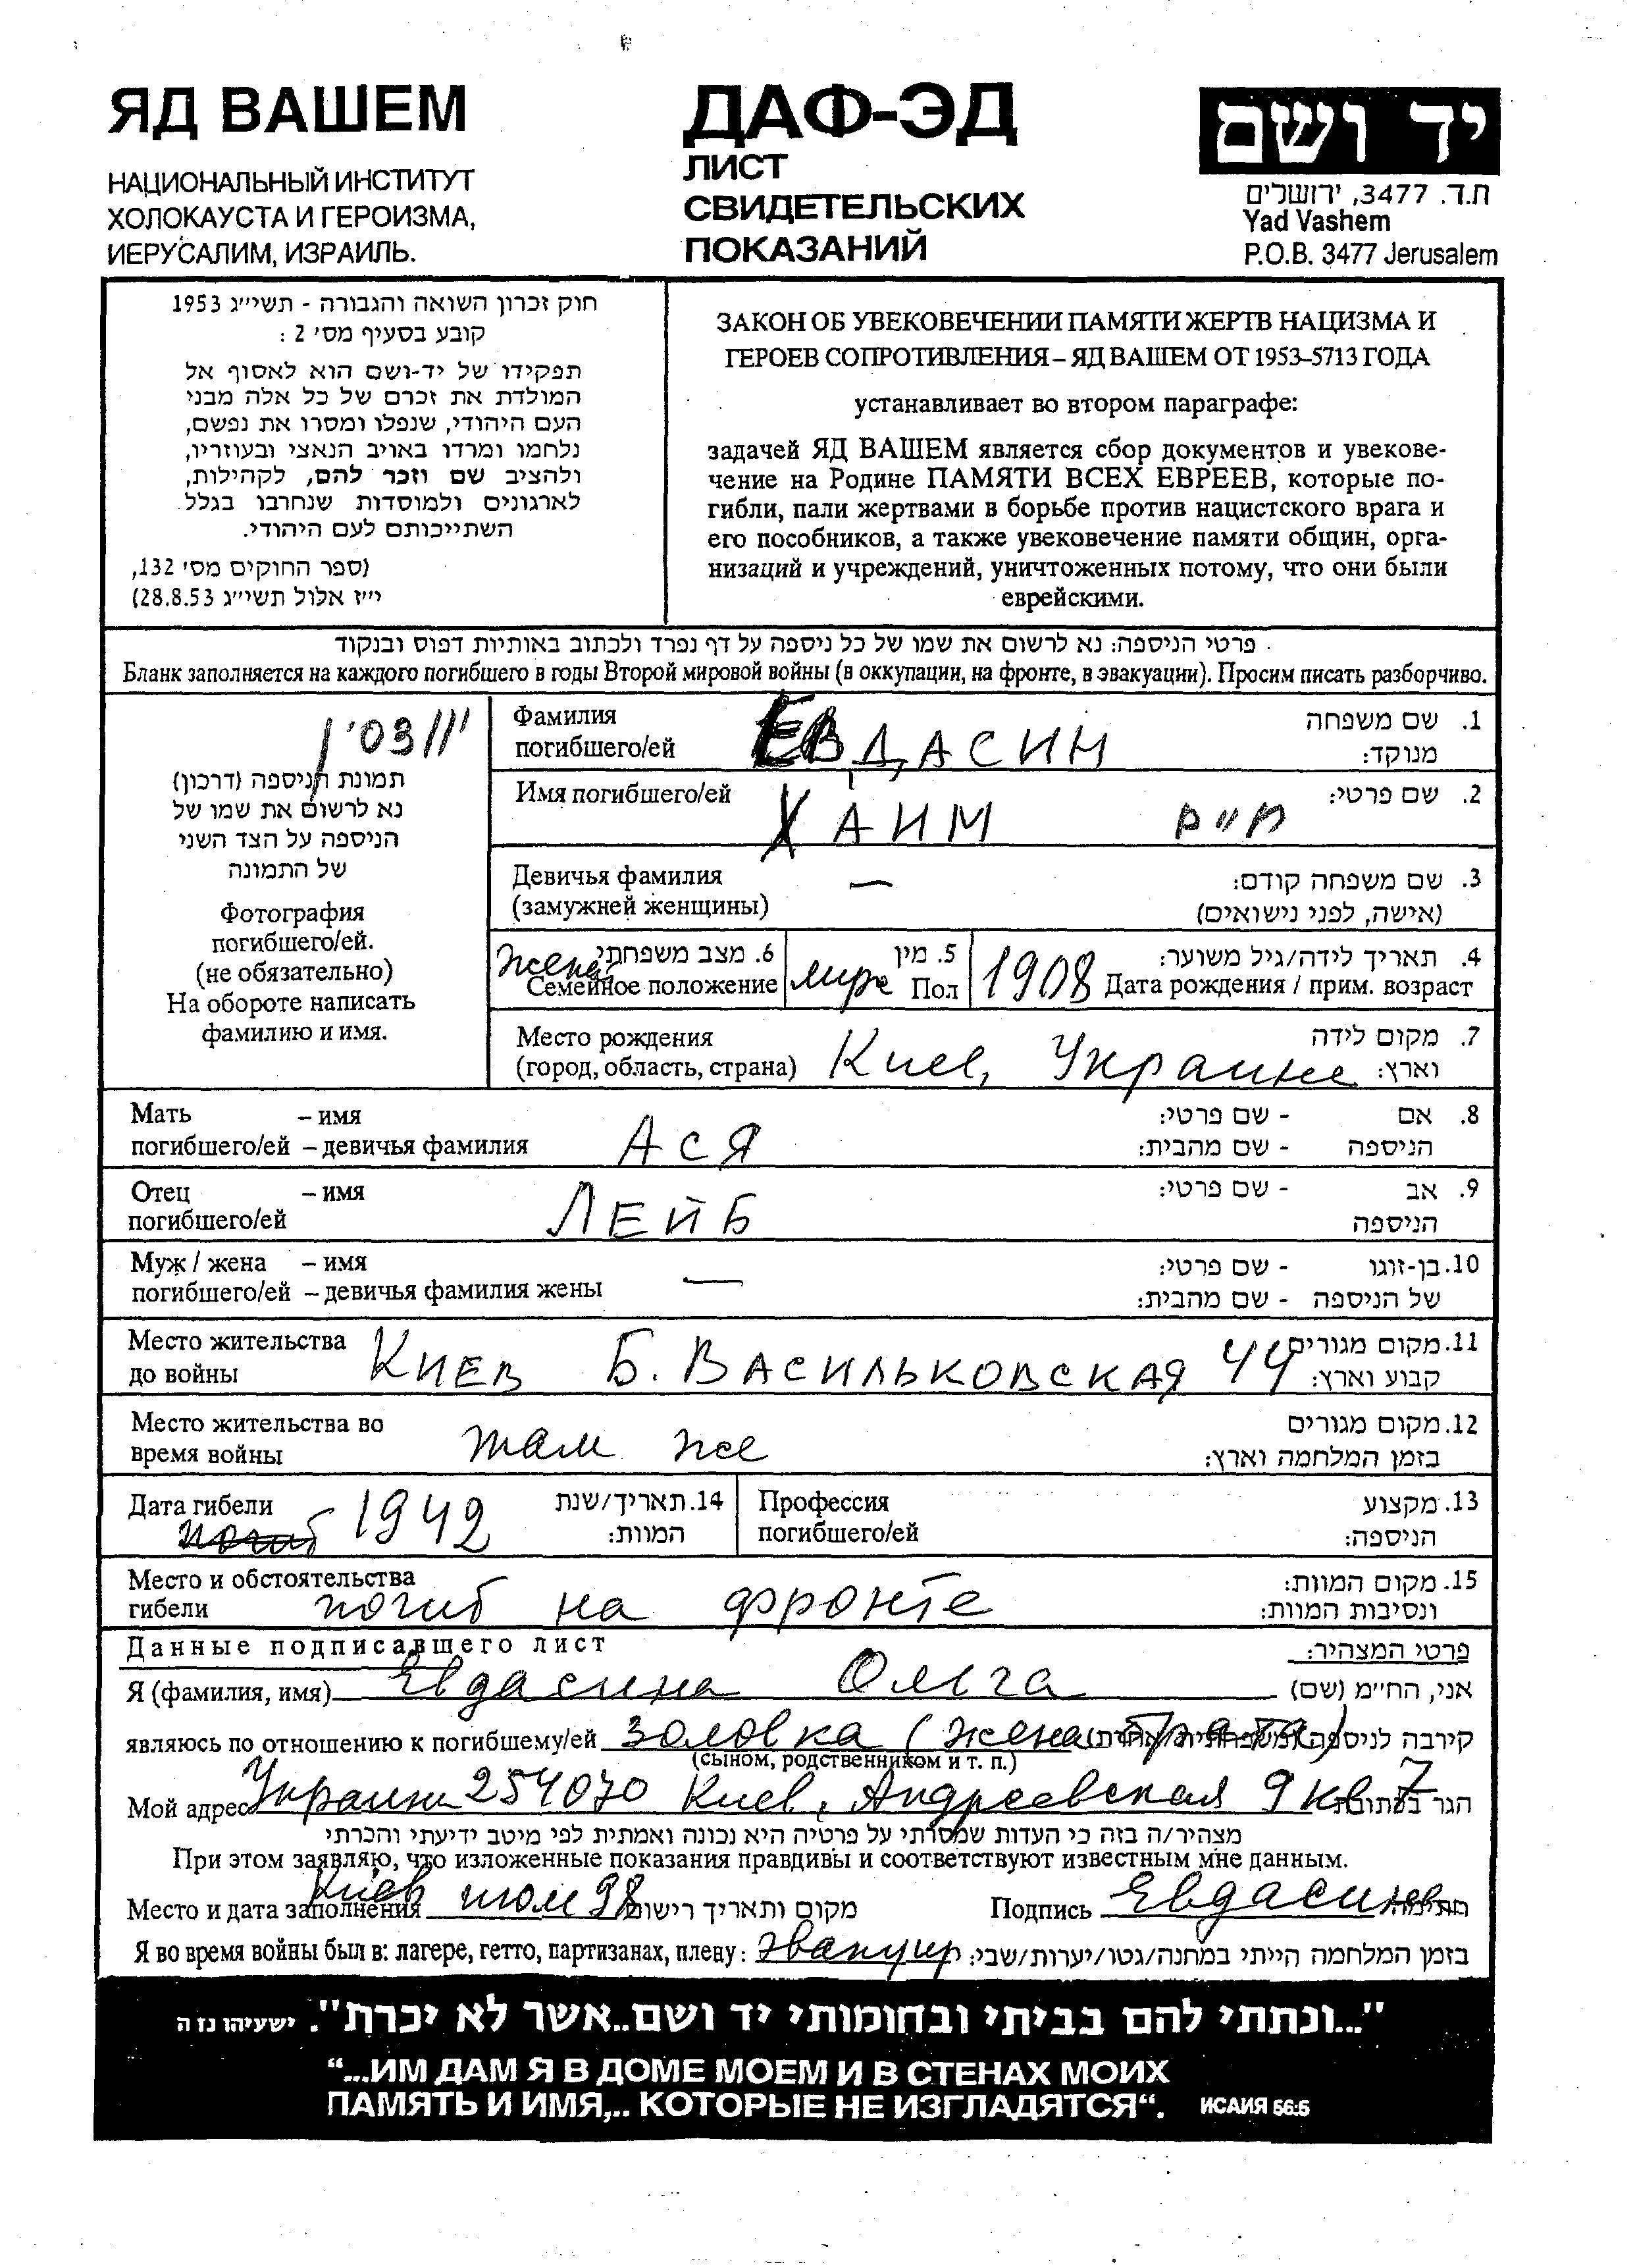 ЯД ВАШЕМ
НАЦИОНАЛЬНЫЙ ИНСТИТУТ
ХОЛОКАУСТА И ГЕРОИЗМА,
ИЕРУСАЛИМ, ИЗРАИЛЬ.
ДАФ-ЭД
ЛИСТ
СВИДЕТЕЛЬСКИХ
ПОКАЗАНИЙ
יד ושם
ת.ד. 3477, ירושלים
Yad Vashem
P.O.B. 3477 Jerusalem
חוק זכרון השואה והגבורה - תשי"ג 1953
קובע בסעיף מס' 2 :
תפקידו של יד-ושם הוא לאסוף אל
המולדת את זכרם של כל אלה מבני
העם היהודי, שנפלו ומסרו את נפשם,
נלחמו ומרדו באויב הנאצי ובעוזריו,
ולהציב שם וזכר להם, לקהילות,
לארגונים ולמוסדות שנחרבו בגלל
השתייכותם לעם היהודי.
(ספר החוקים מס' 132,
י"ז אלול תשי"ג 28.8.53)
ЗАКОН ОБ УВЕКОВЕЧЕНИИ ПАМЯТИ ЖЕРТВ НАЦИЗМА И
ГЕРОЕВ СОПРОТИВЛЕНИЯ – ЯД ВАШЕМ ОТ 1953-5713 ГОДА
устанавливает во втором параграфе:
задачей ЯД ВАШЕМ является сбор документов и увекове-
чение на Родине ПАМЯТИ ВСЕХ ЕВРЕЕВ, которые по-
гибли, пали жертвами в борьбе против нацистского врага и
его пособников, а также увековечение памяти общин, орга-
низаций и учреждений, уничтоженных потому, что они были
еврейскими.
פרטי הניספה: נא לרשום את שמו של כל ניספה על דף נפרד ולכתוב באותיות דפוס ובנקוד
Бланк заполняется на каждого погибшего в годы Второй мировой войны (в оккупации, на фронте, в эвакуации). Просим писать разборчиво.
תמונת הניספה (דרכון)
נא לרשום את שמו של
הניספה על הצד השני
של התמונה
Фотография
погибшего/ей.
(не обязательно)
На обороте написать
фамилию и имя.
Фамилия ЕВДАСИН 1. שם משפחה
погибшего/ей מנוקד:
Имя погибшего/ей ХАИМ חיים 2. שם פרטי:
Девичья фамилия — 3. שם משפחה קודם:
(замужней женщины) (אישה, לפני נישואים)
6. מצב משפחתי 5. מין 4. תאריך לידה/גיל משוער:
Семейное положение Пол 1908 Дата рождения / прим. возраст
Место рождения 7. מקום לידה
(город, область, страна) Киев, Украина וארץ:
Мать – имя АСЯ 8. אם - שם פרטי:
погибшего/ей – девичья фамилия הניספה - שם מהבית:
Отец – имя ЛЕЙБ 9. אב - שם פרטי:
погибшего/ей הניספה
Муж / жена – имя — 10. בן-זוגו - שם פרטי:
погибшего/ей – девичья фамилия жены של הניספה - שם מהבית:
Место жительства КИЕВ Б. ВАСИЛЬКОВСКАЯ 44 11. מקום מגורים
до войны קבוע וארץ:
Место жительства во там же 12. מקום מגורים
время войны בזמן המלחמה וארץ:
Дата гибели 1942 14. תאריך/שנת המוות:
погиб
Профессия 13. מקצוע
погибшего/ей הניספה:
Место и обстоятельства 15. מקום המוות:
гибели погиб на фронте ונסיבות המוות:
Данные подписавшего лист פרטי המצהיר:
Я (фамилия, имя) Евдасина Ольга אני, הח"מ (שם)
являюсь по отношению к погибшему/ей золовка (жена брата) קירבה לניספה
(сыном, родственником и т. п.)
Мой адрес Украина 254070 Киев, Андреевская 9 кв 7 הגר בכתובת
מצהיר/ה בזה כי העדות שמסרתי על פרטיה היא נכונה ואמתית לפי מיטב ידיעתי והכרתי
При этом заявляю, что изложенные показания правдивы и соответствуют известным мне данным.
Место и дата заполнения Киев 98 מקום ותאריך רישום Подпись Евдасина חתימה
Я во время войны был в: лагере, гетто, партизанах, плену: эвакуир בזמן המלחמה הייתי במחנה/גטו/יערות/שבי:
"...ונתתי להם בביתי ובחומותי יד ושם..אשר לא יכרת". ישעיהו נז ה
“...ИМ ДАМ Я В ДОМЕ МОЕМ И В СТЕНАХ МОИХ
ПАМЯТЬ И ИМЯ,.. КОТОРЫЕ НЕ ИЗГЛАДЯТСЯ“. ИСАИЯ 56:5